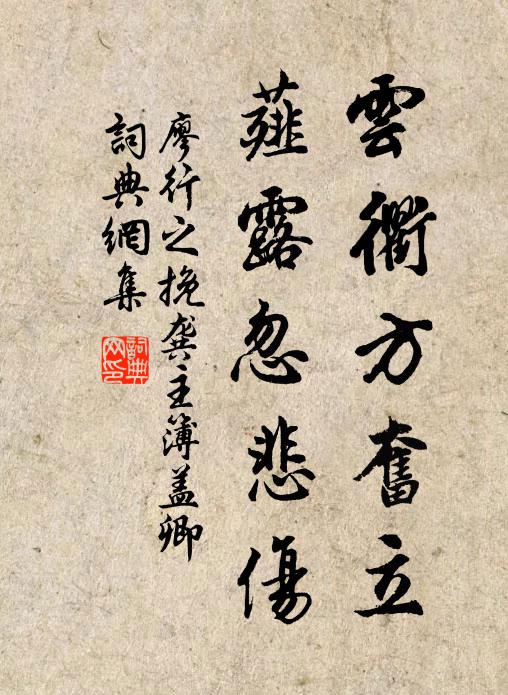 雲衢方奮立
薤露忽悲傷
廖行之挽龔主簿蓋卿
詞典網集
詞典网印